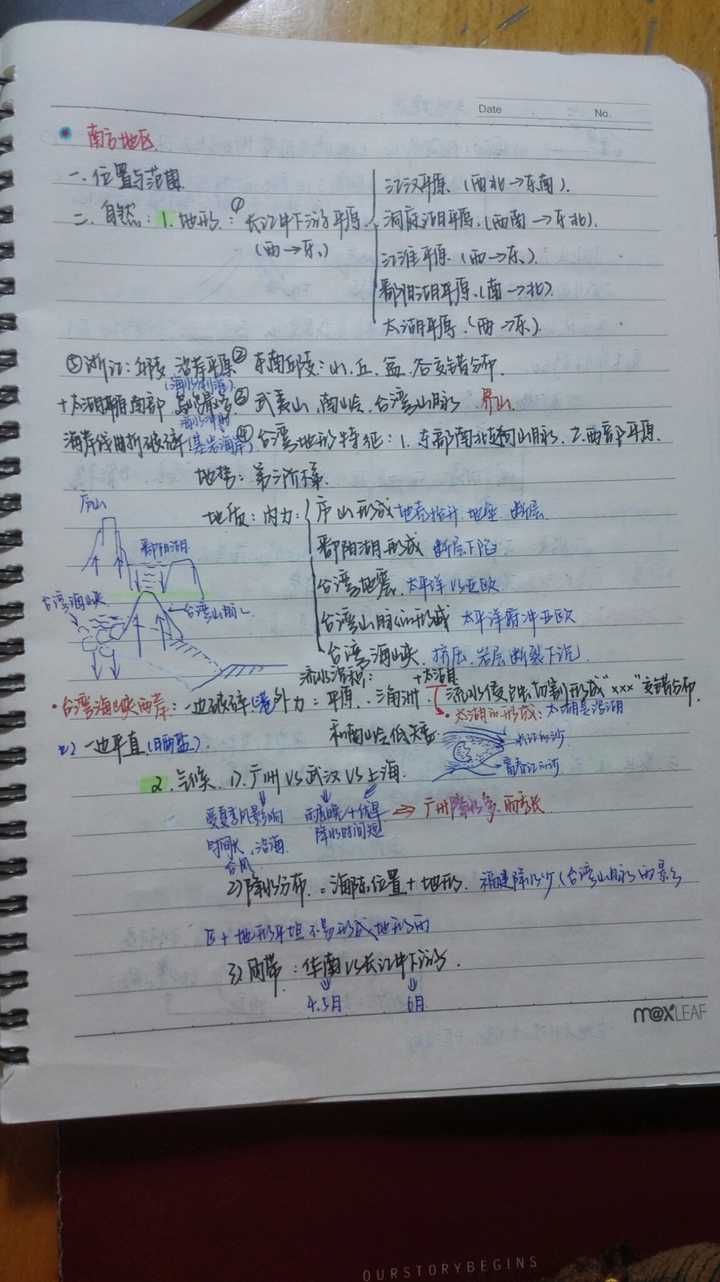 Date No.
南方地区
一、位置与范围
二、自然：1.地形：① 长江中下游平原
(西→东)
江汉平原 (西北→东南).
洞庭湖平原.(西南→东北).
江淮平原.(西→东).
鄱阳湖平原.(南→北).
太湖平原.(西→东).
⑤浙江：丘陵 沿岸平原 ② 东南丘陵：山、丘、盆、谷交错分布.
+太湖平原南部 ③ 武夷山、南岭、台湾山脉 界山.
海岸线曲折破碎(基岩海岸) ④ 台湾地形特征：1.东部南北走向山脉. 2.西部平原.
地势：第三阶梯
地质：内力：
庐山形成 地壳抬升 地垒 断层
鄱阳湖形成 断层下陷
台湾地震 太平洋vs亚欧
台湾山脉的形成 太平洋俯冲亚欧
台湾海峡 挤压.岩层断裂下沉.
庐山
鄱阳湖
台湾海峡
台湾山脉
流水沉积： +太湖
·台湾海峡西岸：一边破碎 外力：平原、三角洲. 流水侵蚀、切割形成"xxx"交错分布.
2) 一边平直
和南岭低矮
·太湖的形成：太湖是潟湖
长江的沙
2.气候. 1).广州vs武汉vs上海.
受夏季风影响
时间长、沿海
台风
雨废晚+伏旱
降水时间短
⇒ 广州降水多.雨季长
2)降水分布.：海陆位置+地形. 福建降水少(台湾山脉的
区+地形平坦不易形成地形雨
3)雨带：华南vs长江中下游.
4.5月 6月
m@xLEAF
OURSTORYBEGINS